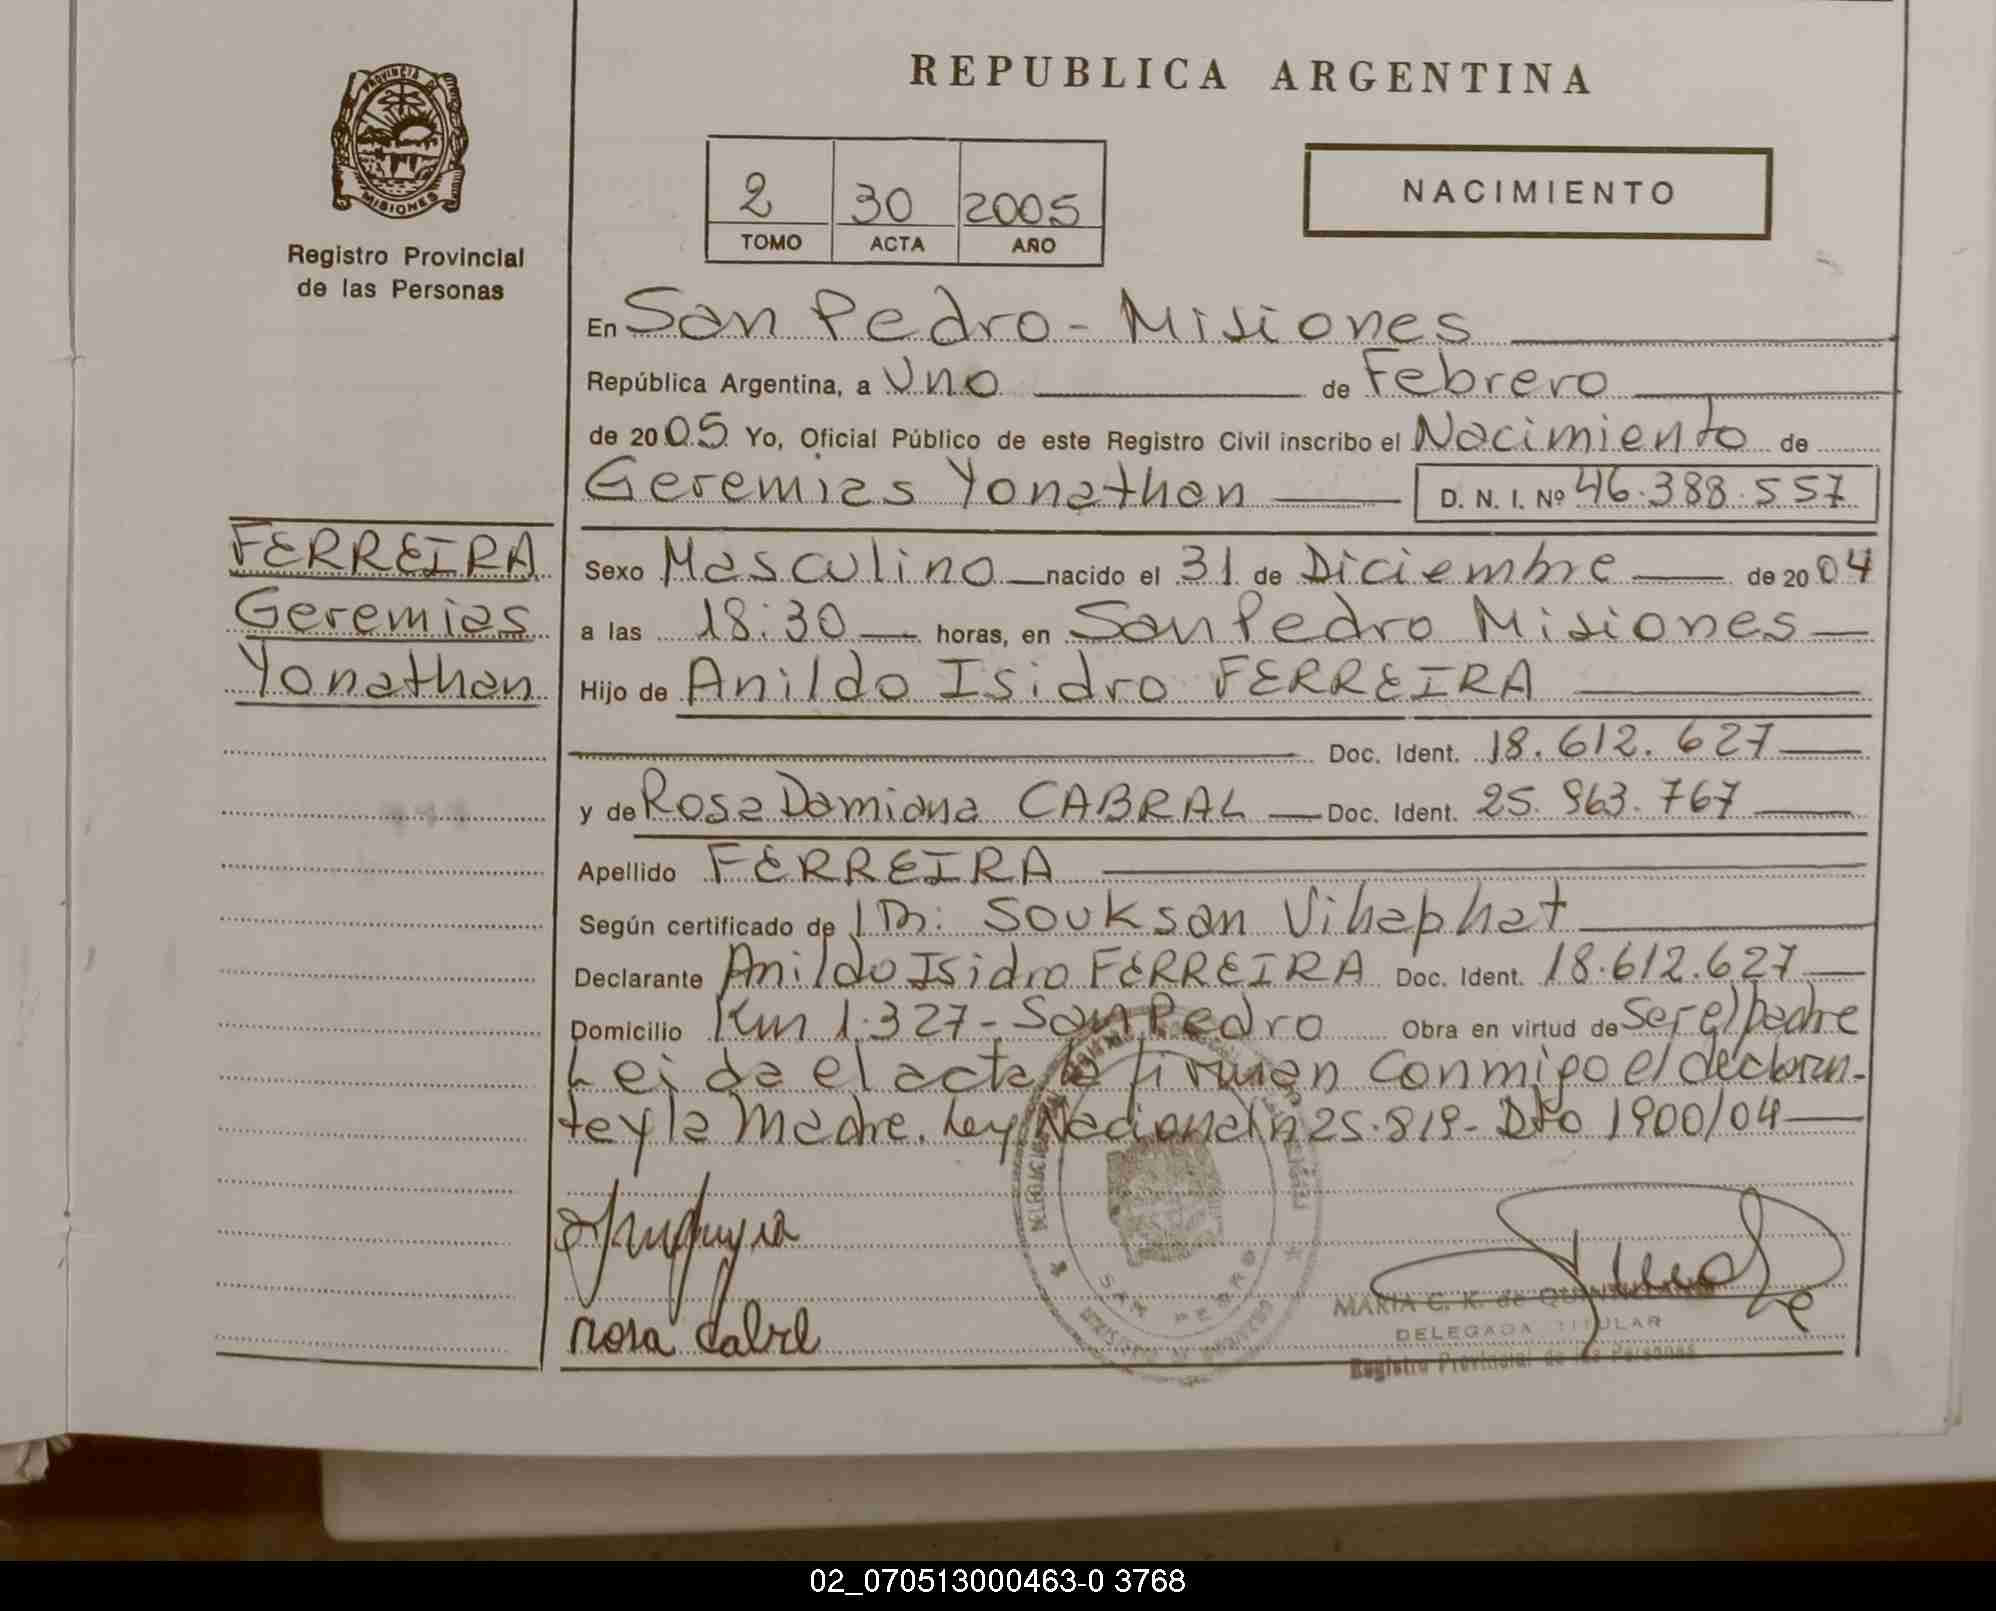 REPUBLICA ARGENTINA
PROVINCIA DE MISIONES
Registro Provincial
de las Personas
2 30 2005
TOMO ACTA AÑO
NACIMIENTO
En San Pedro - Misiones
República Argentina, a Uno de Febrero
de 2005 Yo, Oficial Público de este Registro Civil inscribo el Nacimiento de
Geremias Yonathan D. N. I. Nº 46.388.557
FERREIRA
Geremias
Yonathan
Sexo Masculino nacido el 31 de Diciembre de 2004
a las 18:30 horas, en San Pedro Misiones
Hijo de Anildo Isidro FERREIRA
Doc. Ident. 18.612.627
y de Rosa Damiana CABRAL Doc. Ident. 25.963.767
Apellido FERREIRA
Según certificado de Souksan Vihaphat
Declarante Anildo Isidro FERREIRA Doc. Ident. 18.612.627
Domicilio Km 1.327 - San Pedro Obra en virtud de ser el padre
Leida el acta la firman conmigo el declaran-
te y la Madre. Ley Nacional n 25.819 - Dto 1900/04
rosa Cabrl
SAN PEDRO
MARIA C. K. de
DELEGADA TITULAR
Registro Provincial de las Personas
02_070513000463-0 3768